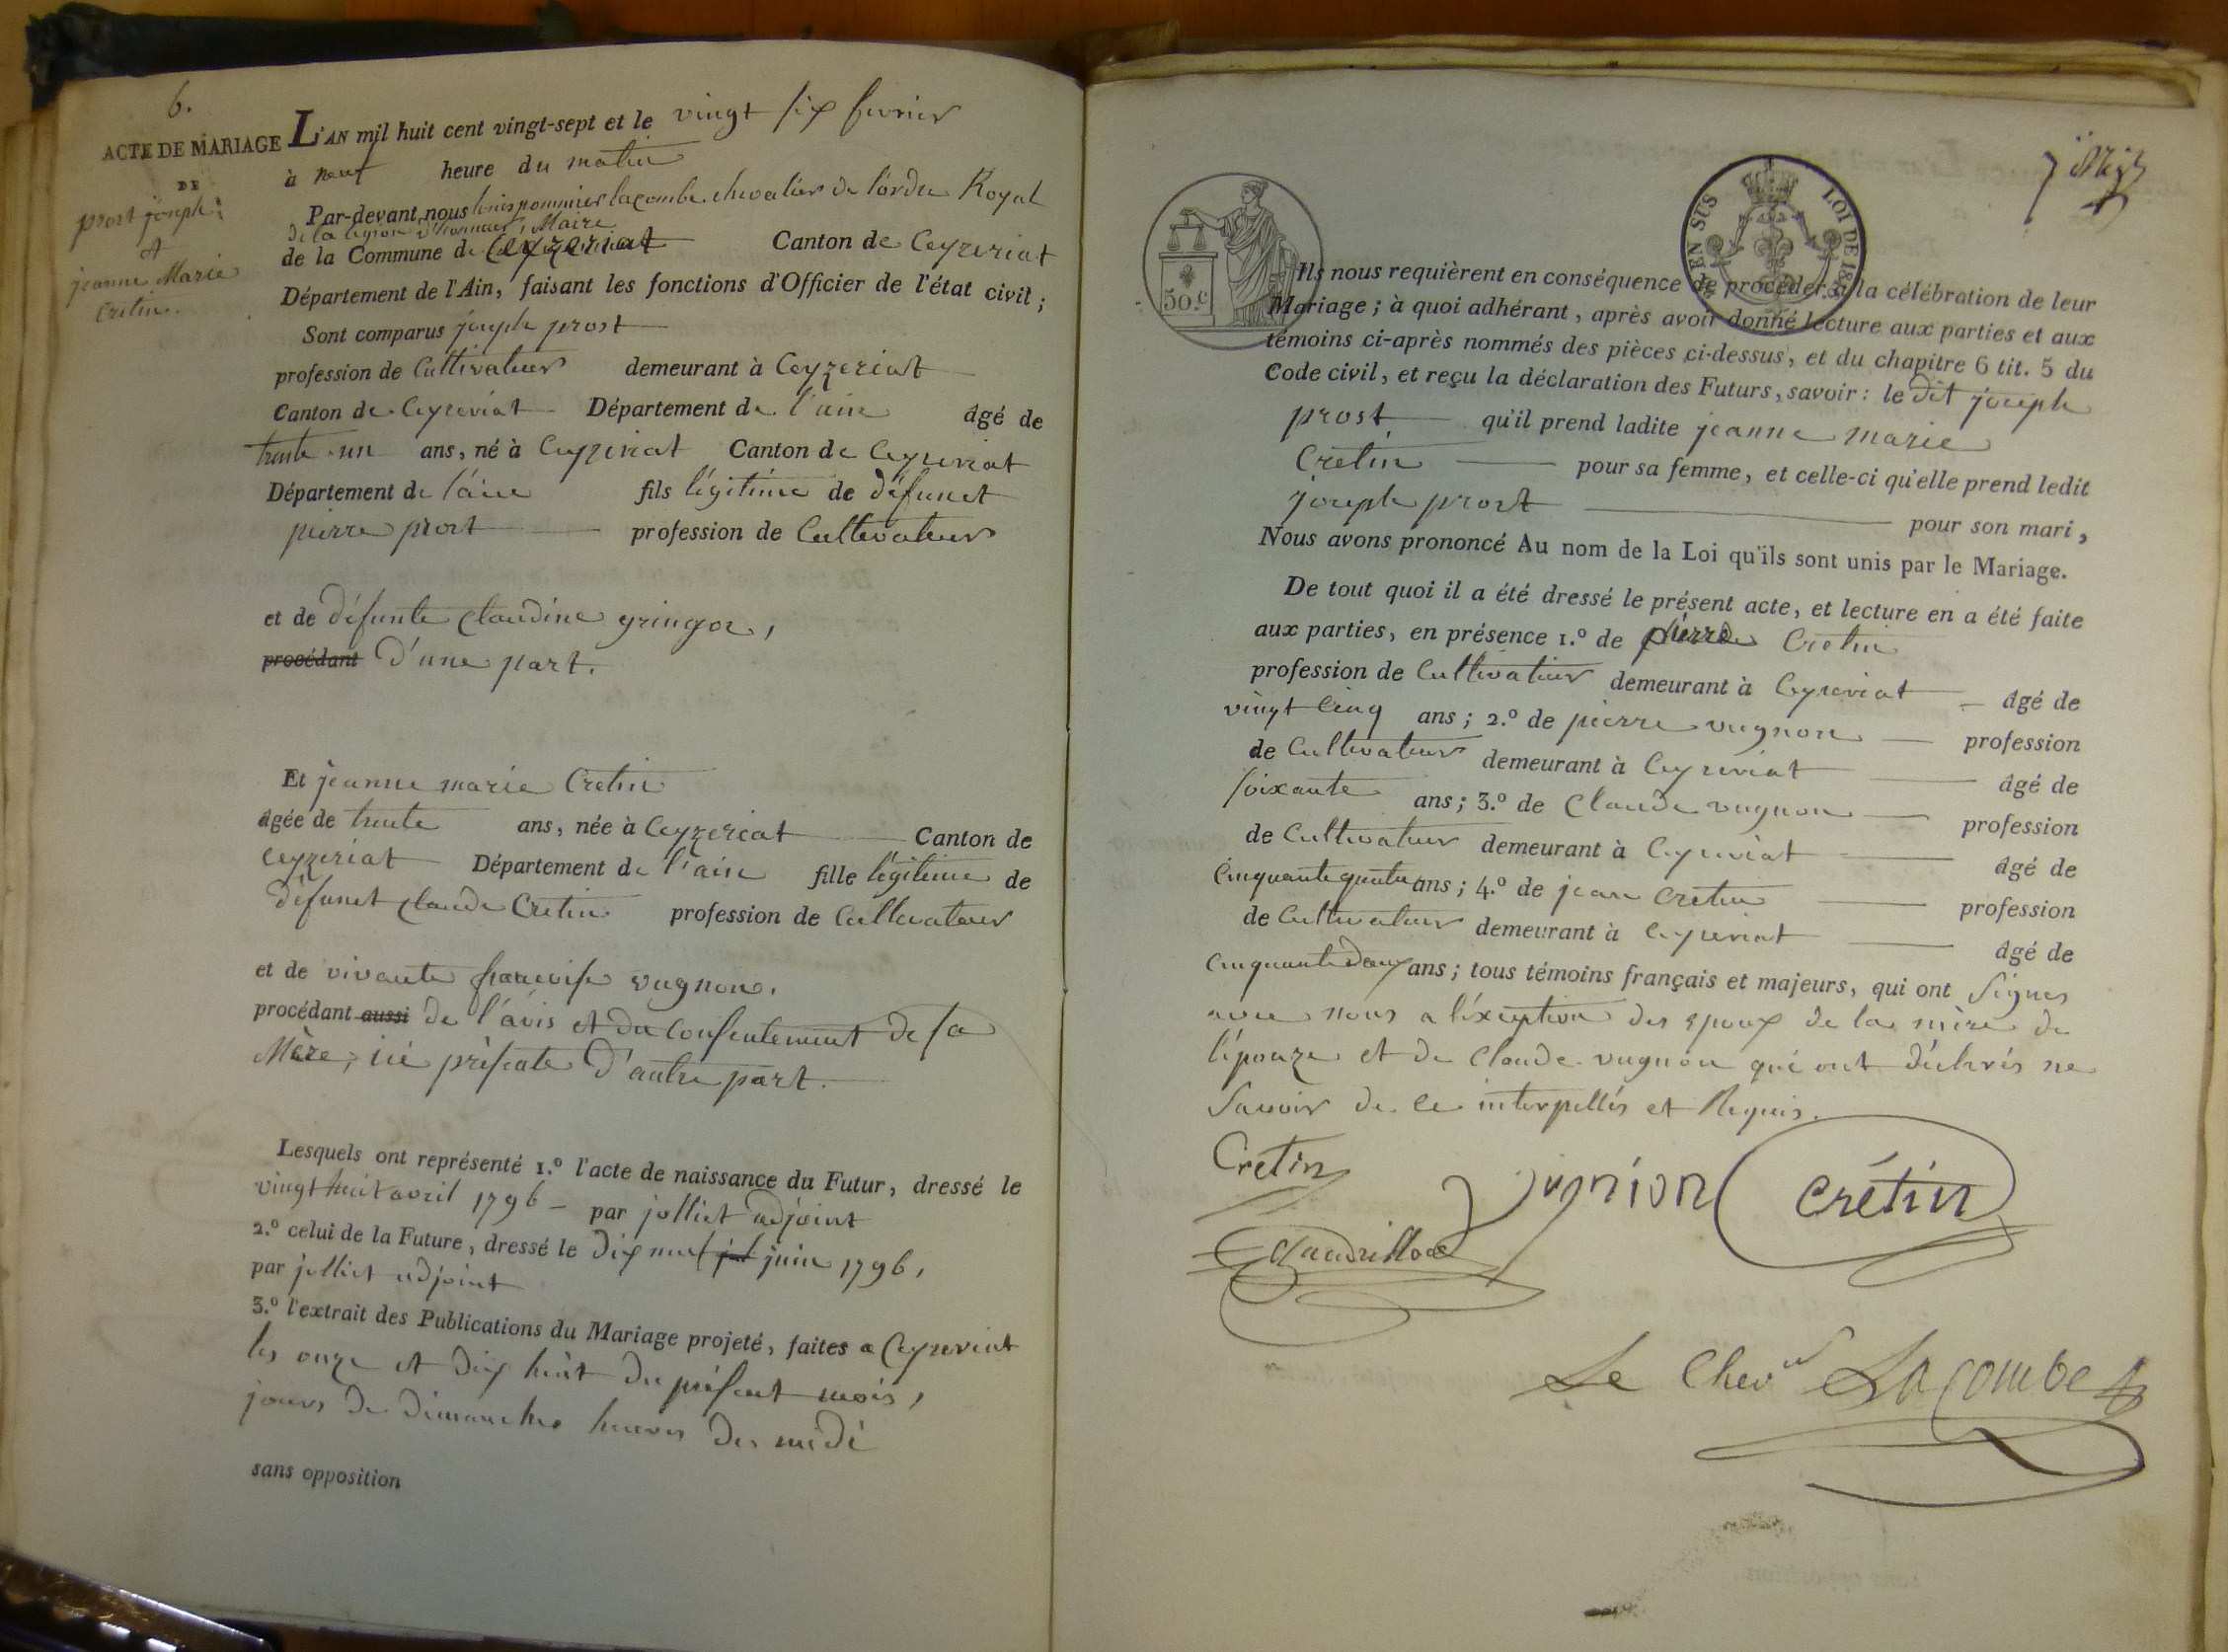 6.
ACTE DE MARIAGE
DE
prost joseph
et
jeanne Marie
Cretin.
L'AN mil huit cent vingt-sept et le vingt six fevrier
à neuf heure du matin
Par-devant nous louis pommier lacombe chevalier de l'ordre Royal
de la légion d'honneur, Maire
de la Commune de Ceyzeriat Canton de Ceyzeriat
Département de l'Ain, faisant les fonctions d'Officier de l'état civil;
Sont comparus joseph prost
profession de Cultivateur demeurant à Ceyzeriat
Canton de Ceyzeriat Département de l'ain âgé de
trente-un ans, né à Ceyzeriat Canton de Ceyzeriat
Département de l'ain fils légitime de défunct
pierre prost profession de Cultivateur
et de défunte Claudine gringoz,
procédant d'une part.
Et jeanne marie Cretin
âgée de trente ans, née à Ceyzeriat Canton de
Ceyzeriat Département de l'ain fille légitime de
défunct claude Cretin profession de Cultivateur
et de vivante francoise vugnon.
procédant aussi de l'avis et du consentement de sa
Mère, ici présente d'autre part.
Lesquels ont représenté 1.º l'acte de naissance du Futur, dressé le
vingt huit avril 1796 – par jolliet adjoint
2.º celui de la Future, dressé le dix neuf juin 1796,
par jolliet adjoint
3.º l'extrait des Publications du Mariage projeté, faites a Ceyzeriat
les onze et dix huit du présent mois,
jours de dimanches heures de midi
sans opposition
EN SUS LOI DE
50.c
Ils nous requièrent en conséquence de procéder à la célébration de leur
Mariage; à quoi adhérant, après avoir donné lecture aux parties et aux
témoins ci-après nommés des pièces ci-dessus, et du chapitre 6 tit. 5 du
Code civil, et reçu la déclaration des Futurs, savoir: le dit joseph
prost qu'il prend ladite jeanne marie
Cretin pour sa femme, et celle-ci qu'elle prend ledit
joseph prost pour son mari,
Nous avons prononcé Au nom de la Loi qu'ils sont unis par le Mariage.
De tout quoi il a été dressé le présent acte, et lecture en a été faite
aux parties, en présence 1.º de pierre Cretin
profession de Cultivateur demeurant à Ceyzeriat âgé de
vingt Cinq ans; 2.º de pierre vugnon profession
de Cultivateur demeurant à Ceyzeriat âgé de
soixante ans; 3.º de Claude vugnon profession
de Cultivateur demeurant à Ceyzeriat âgé de
Cinquante quatre ans; 4.º de jean Cretin profession
de Cultivateur demeurant à Ceyzeriat âgé de
Cinquante deux ans; tous témoins français et majeurs, qui ont Signés
avec nous a l'éxception des epoux de la mère de
l'épouze et de Claude vugnon qui ont déclarés ne
Savoir de ce interpellés et Requis.
Cretin
vugnion
Crétin
Le Chev.er Lacombe